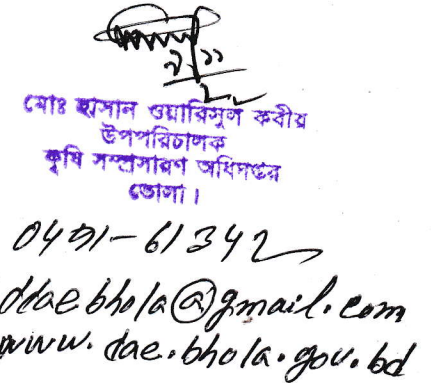 মোঃ হাসান ওয়ারিসুল কবীর
উপপরিচালক
কৃষি সম্প্রসারণ অধিদপ্তর
ভোলা।
0491-61342
ddae bhola@gmail.com
www.dae.bhola.gov.bd